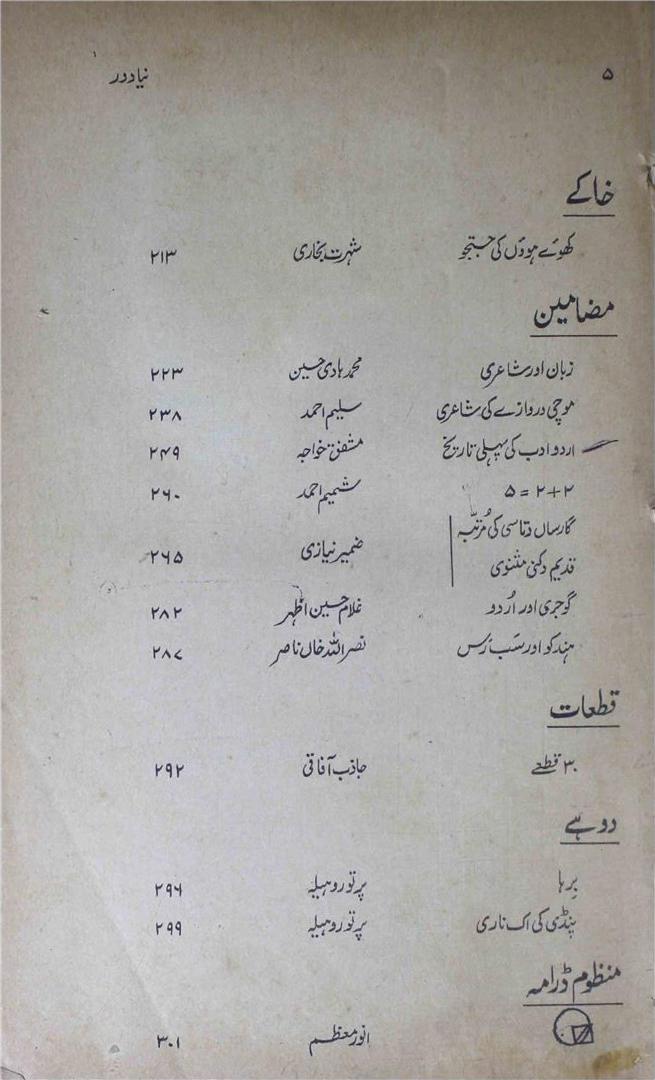 ۵ نیا دور
خاکے
کھوئے ہوؤں کی جستجو شہرت بخاری ۲۱۳
مضامین
زبان اور شاعری محمد ہادی حسین ۲۲۳
موچی دروازے کی شاعری سلیم احمد ۲۳۸
اردو ادب کی پہلی تاریخ مشفق خواجہ ۲۴۹
۲+۲ = ۵ شمیم احمد ۲۶۰
گارساں دتاسی کی مُرتّبہ
قدیم دکنی مثنوی ضمیر نیازی ۲۶۵
گوجری اور اُردو غلام حسین اظہر ۲۸۲
ہندکو اور سَب رَس نصر اللہ خاں ناصر ۲۸۷
قطعات
۳۰ قطعے جاذب آفاقی ۲۹۲
دوہے
بِرہا پرتو روہیلہ ۲۹۶
پنڈی کی اک ناری پرتو روہیلہ ۲۹۹
منظوم ڈرامہ
انور معظم ۳۰۱